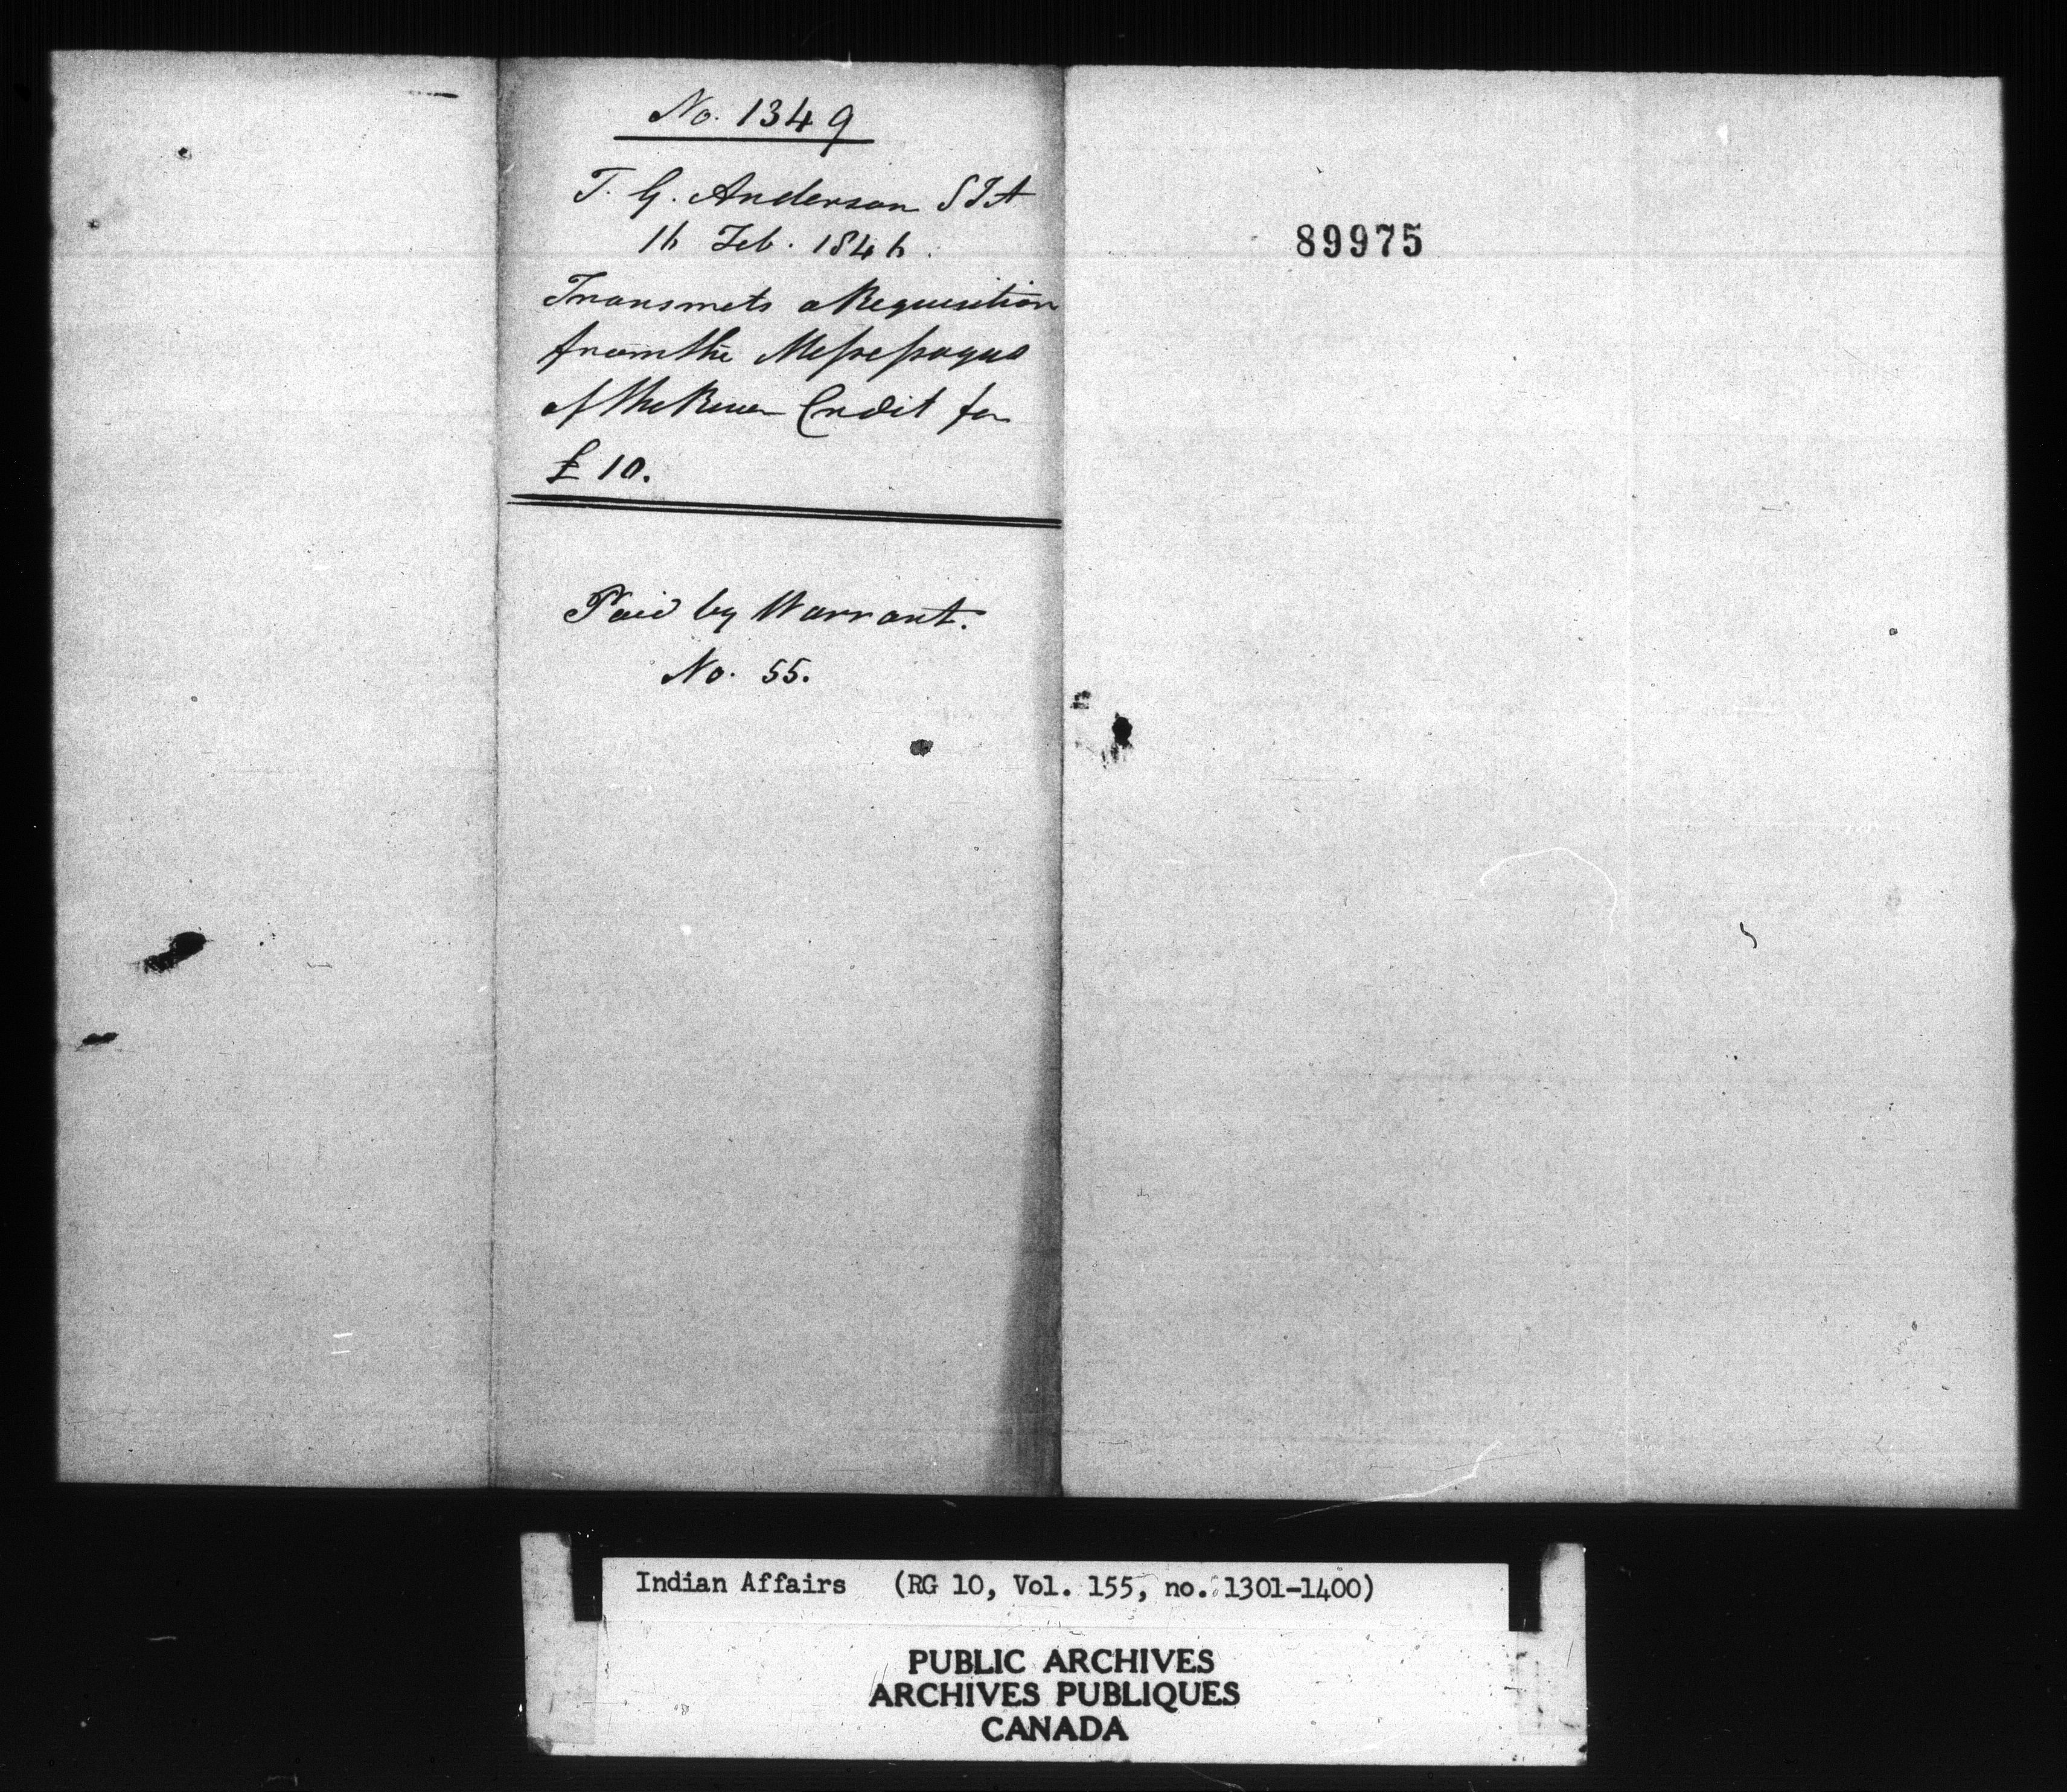 No. 1349
T. G. Anderson SIA
16 Feb. 1846.
Transmets a Requisition
from the Messessagus
of the River Credit for
£ 10.
Paid by Warrant.
No. 55.
89975
Indian Affairs (RG 10, Vol. 155, no. 1301-1400)
PUBLIC ARCHIVES
ARCHIVES PUBLIQUES
CANADA